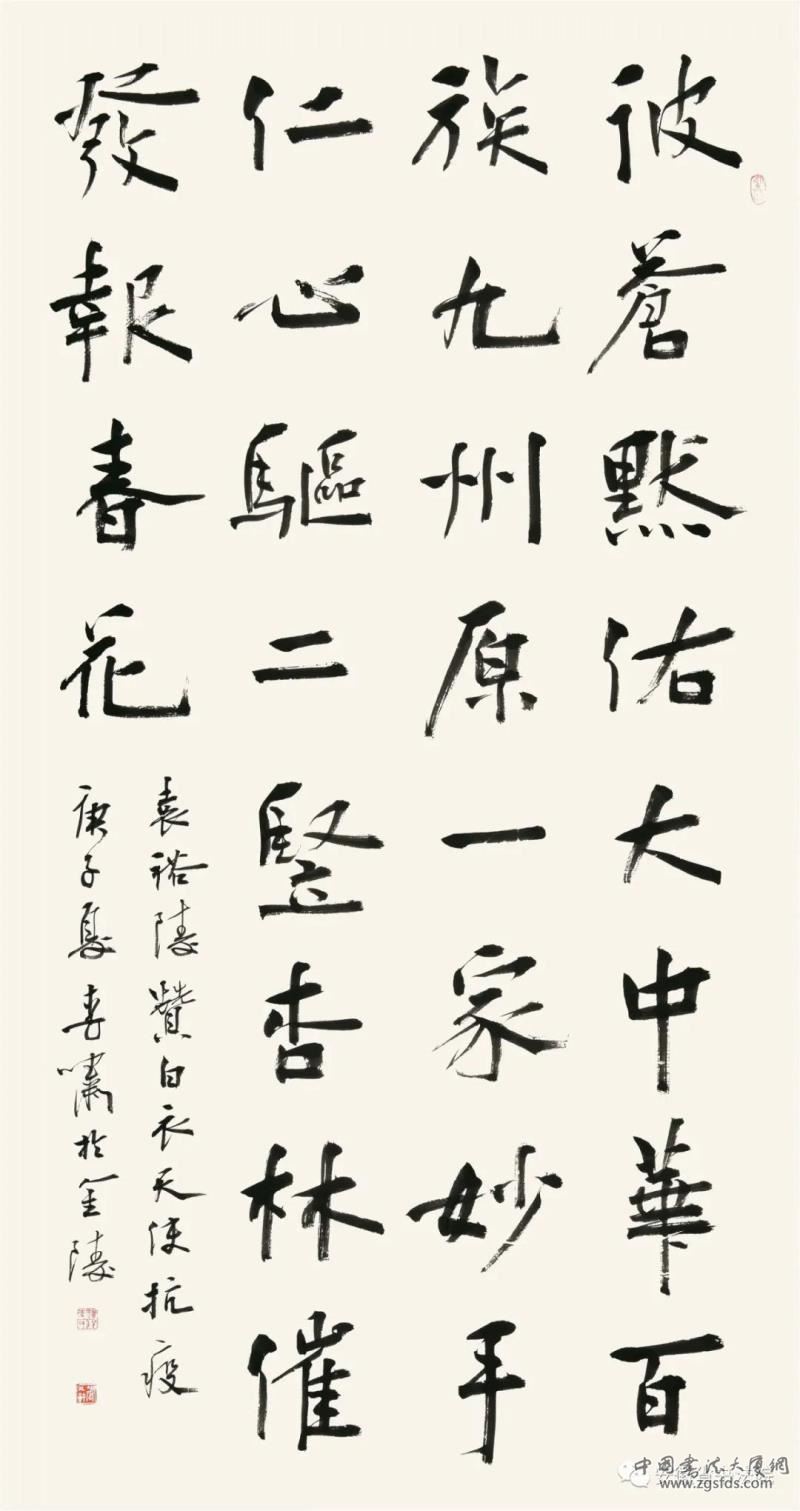 彼蒼黙佑大中華百
族九州原一家妙手
仁心驅二豎杏林催
發報春花
袁裕陵贊白衣天使抗疫
庚子夏 李嘯於金陵
中國書法大厦網
www.zgsfds.com